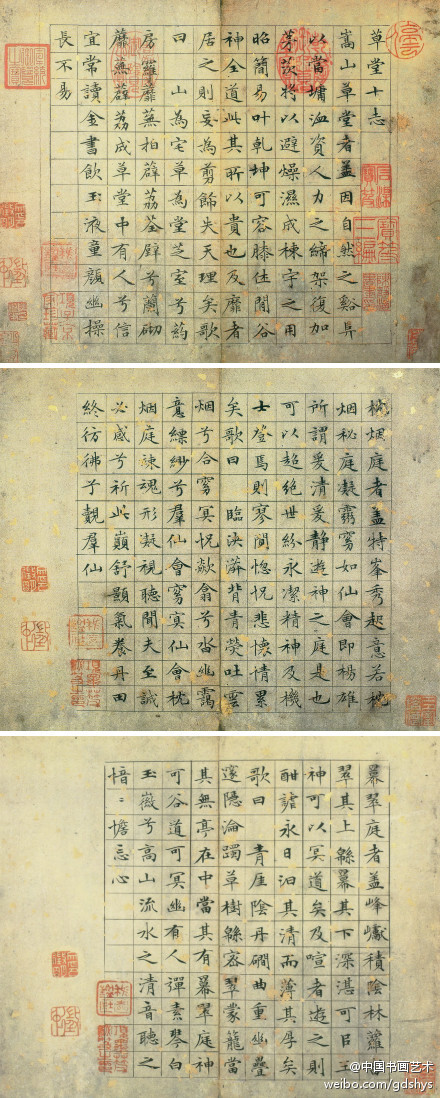 草堂十志
嵩山草堂者蓋因自然之谿阜
以當墉洫資人力之締架復加
茅茨將以避燥濕成棟宇之用
昭簡易叶乾坤可容膝休閒谷
神全道此其所以貴也及靡者
居之則妄為剪飾失天理矣歌
曰 山為宅草為堂芝室兮葯
房羅蘼蕪相薜荔荃壁兮蘭砌
蘼蕪薜荔成草堂中有人兮信
宜常讀金書飲玉液童顏幽操
長不易
枕烟庭者蓋特峯秀起意若枕
烟秘庭凝靄窅如仙會即楊雄
所謂爰清爰静遊神之庭是也
可以超絕世紛永潔精神及機
士登焉則寥閴惚怳悲懷情累
矣歌曰 臨泱漭背青熒吐雲
烟兮合窅冥怳歘翕兮沓幽靄
意縹緲兮羣仙會窅冥仙會枕
烟庭竦魂形凝視聽聞夫至誠
必感兮祈此巔舒顥氣養丹田
終彷彿兮覯羣仙
羃翠庭者蓋峰巘積陰林蘿
翠其上緜羃其下深湛可居王
神可以冥道矣及喧者遊之則
酣謔永日汩其清而薄其厚矣
歌曰 青厓陰丹磵曲重幽疊
邃隱淪躅草樹緜宻翠蒙籠當
其無亭在中當其有羃翠庭神
可谷道可冥幽有人彈素琴白
玉徽兮高山流水之清音聽之
愔〻憺忘心
@中国书画艺术
weibo.com/gdshys